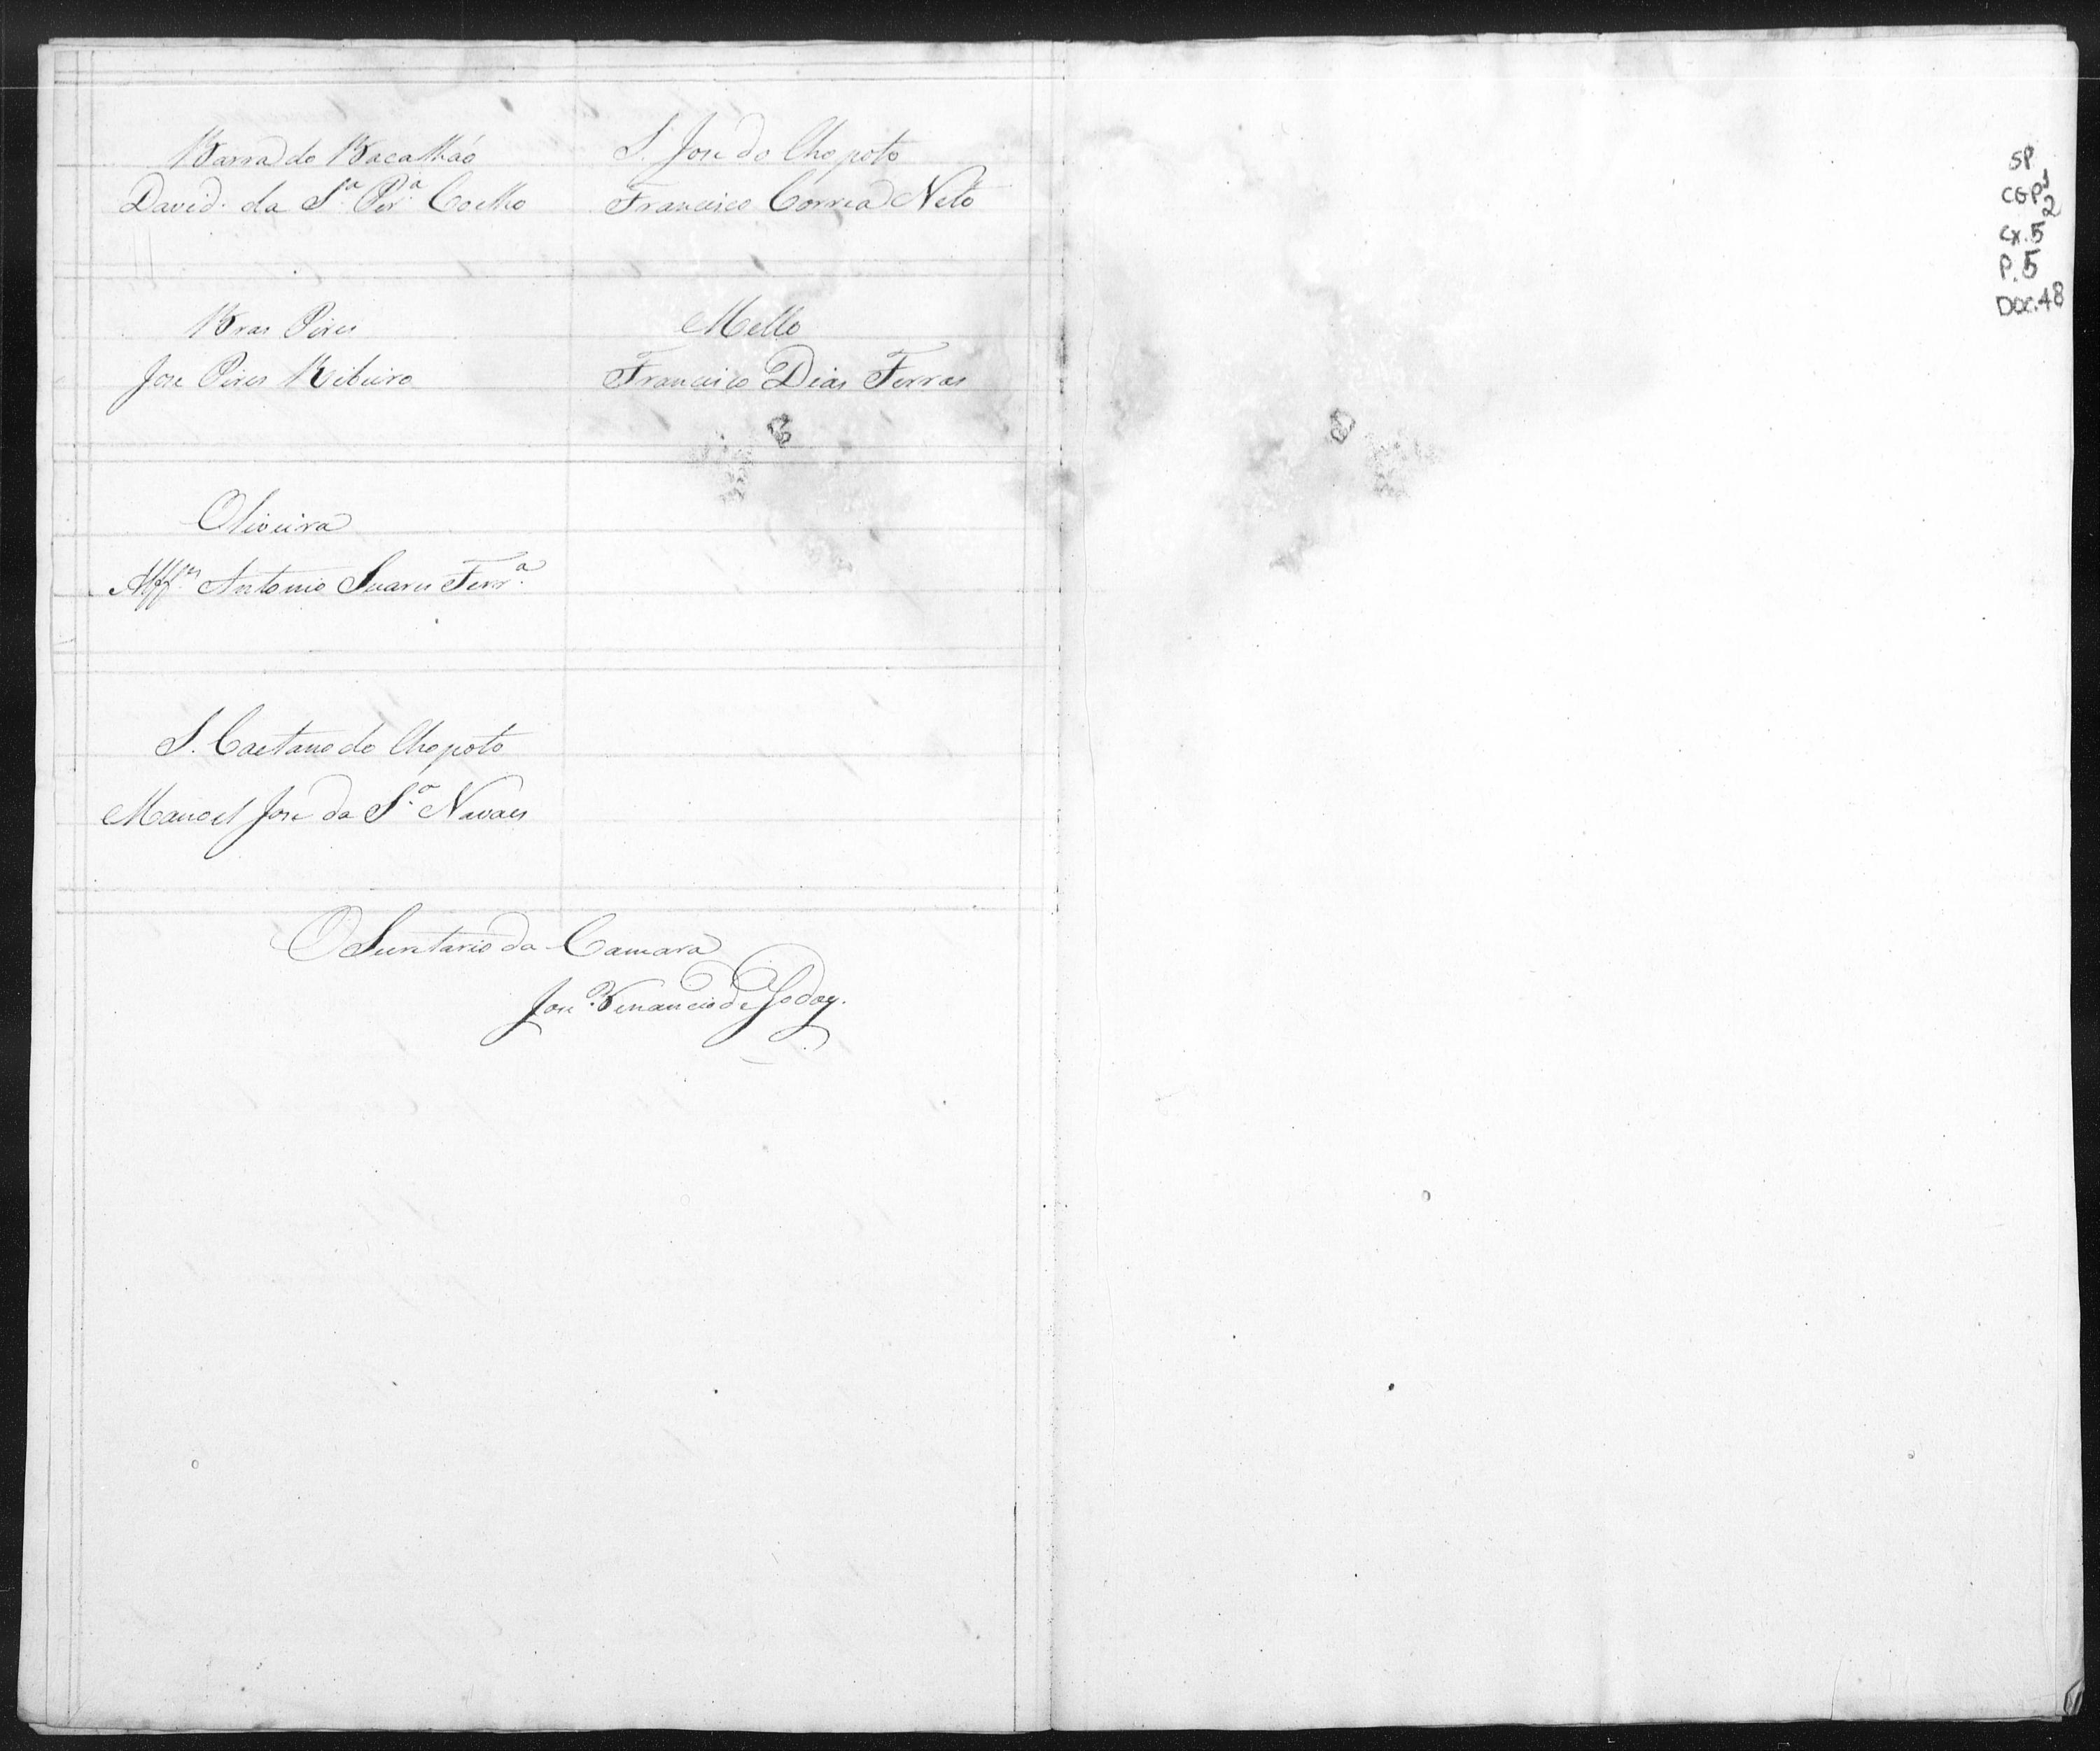 Barra do Bacalháo
David da S.ª Per.ª Coelho
S. Jose do Chopoto
Francisco Correa Neto
Bras Pires
Jose Pires Ribeiro
Mello
Francisco Dias Ferras
Oliveira
Alff.es Antonio Suares Ferr.ª
S. Caetano do Chopoto
Manoel Jose da S.ª Navaes
O Secretario da Camara
Jose Venancio de Godoy.
SP
CGP 1
2
CX. 5
P. 5
DOC. 48